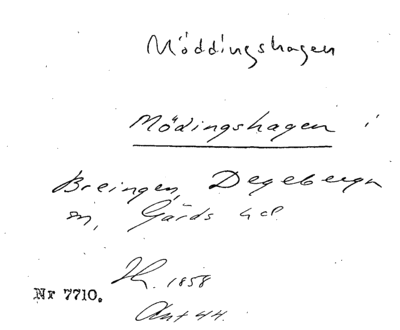 Möddingshagen
Mödingshagen i
Breingen, Degeberga
sn, Gärds hd.
1858
Nr 7710.
Ant 44.